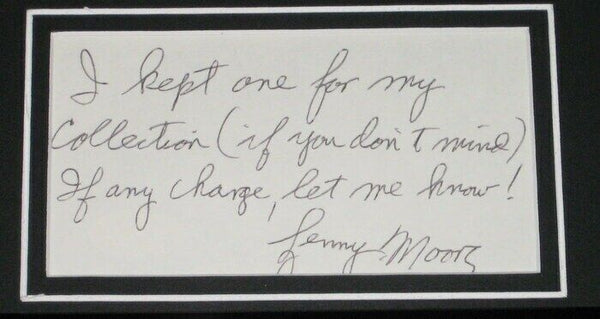 I kept one for my
Collection (if you don't mind)
If any charge, let me know!
Lenny Moore